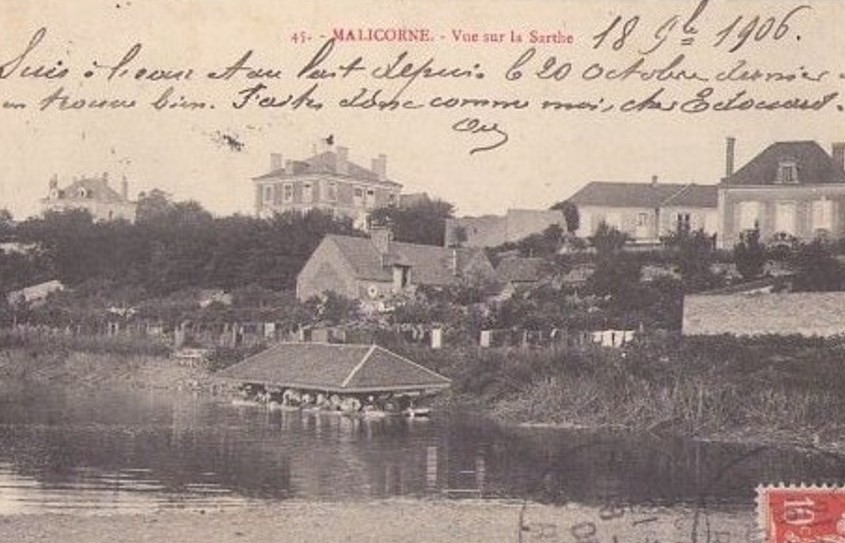 45. - MALICORNE. - Vue sur la Sarthe
18 9bre 1906.
Suis à l'eau et au lait depuis le 20 Octobre dernier
en trouve bien. Faites donc comme moi, cher Edouard.
10